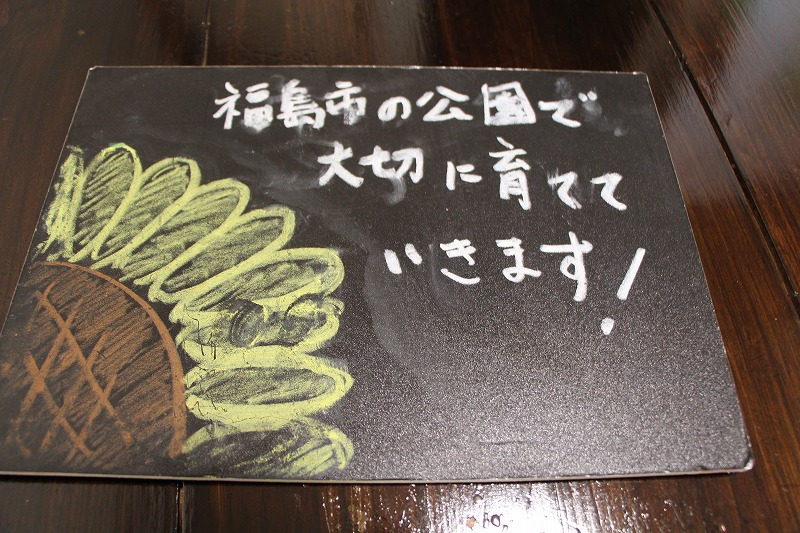 福島市の公園で
大切に育てて
いきます!